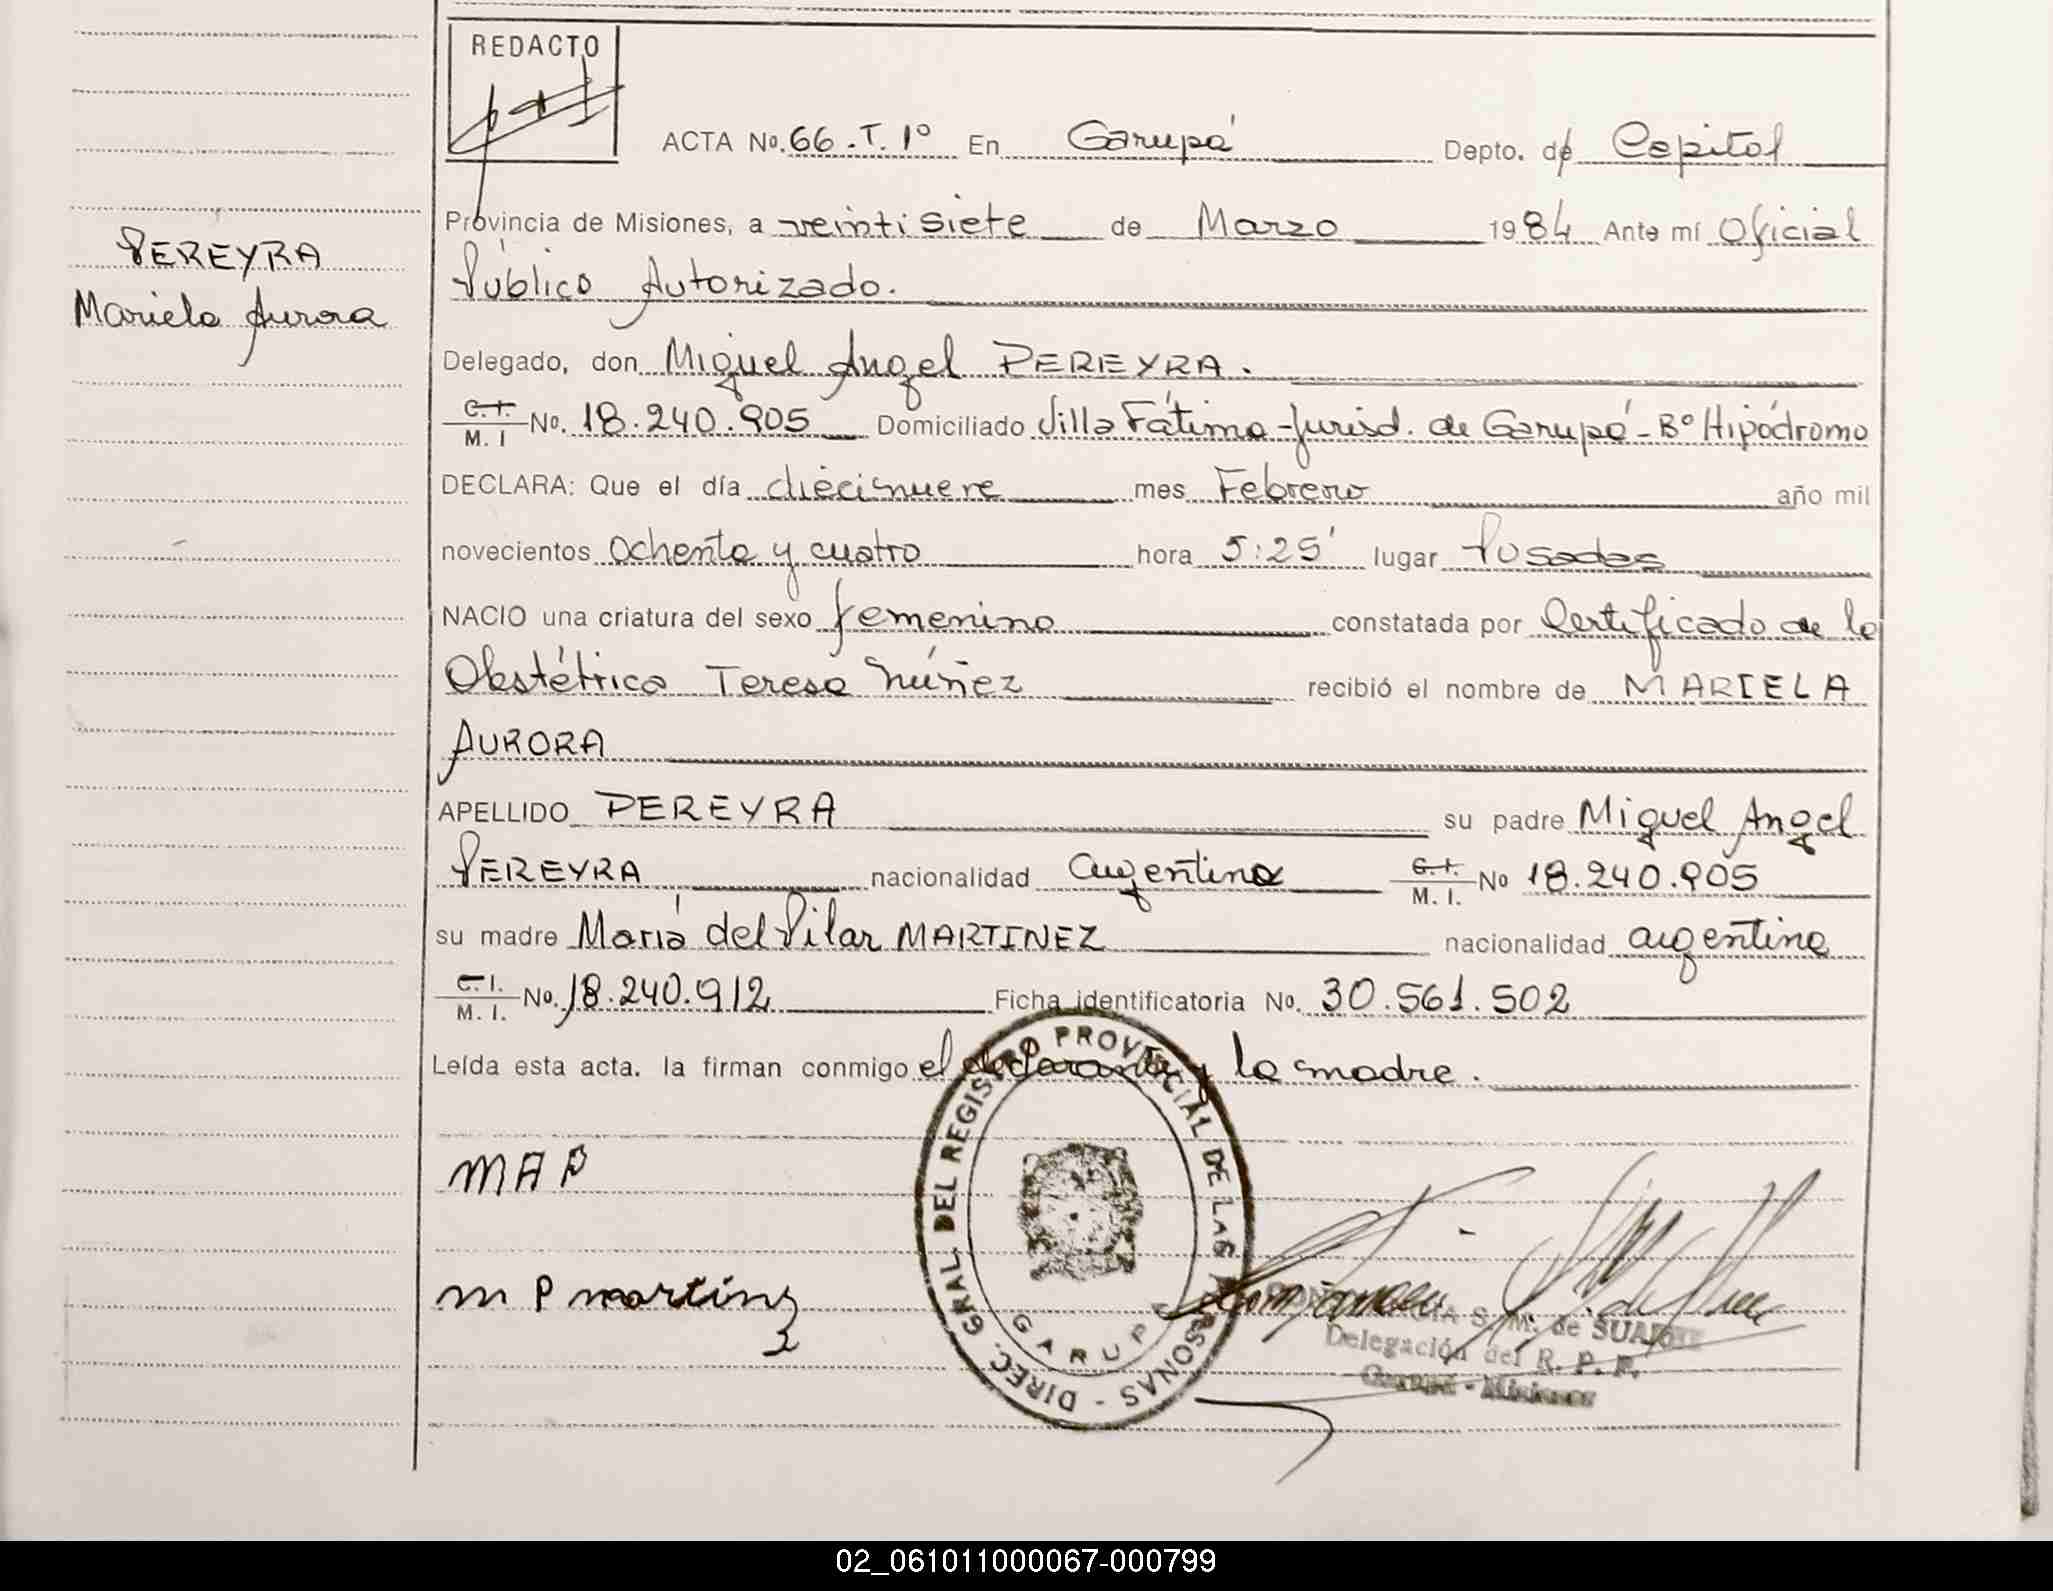 REDACTO
ACTA No. 66.T.1º En Garupá Depto. de Capital
Provincia de Misiones, a veintisiete de Marzo 1984 Ante mí Oficial
Público Autorizado.
PEREYRA
Mariela Aurora
Delegado, don Miguel Angel PEREYRA.
C.I. M. I No. 18.240.905 Domiciliado Villa Fátima - Jurisd. de Garupá - Bº Hipódromo
DECLARA: Que el día diecinueve mes Febrero año mil
novecientos ochenta y cuatro hora 5:25' lugar Posadas
NACIO una criatura del sexo femenino constatada por Certificado de la
Obstétrica Teresa Núñez recibió el nombre de MARIELA
AURORA
APELLIDO PEREYRA su padre Miguel Angel
PEREYRA nacionalidad argentina C.I. M. I. No 18.240.905
su madre María del Pilar MARTINEZ nacionalidad argentina
C.I. M. I. No. 18.240.912 Ficha identificatoria No. 30.561.502
Leída esta acta. la firman conmigo el declarante y la madre.
MAP
M P martinz
DIREC. GRAL. DEL REGISTRO PROVINCIAL DE LAS PERSONAS -
GARUPA
S. M. de SUAREZ
Delegación del R. P. P.
Garupá - Misiones
02_061011000067-000799